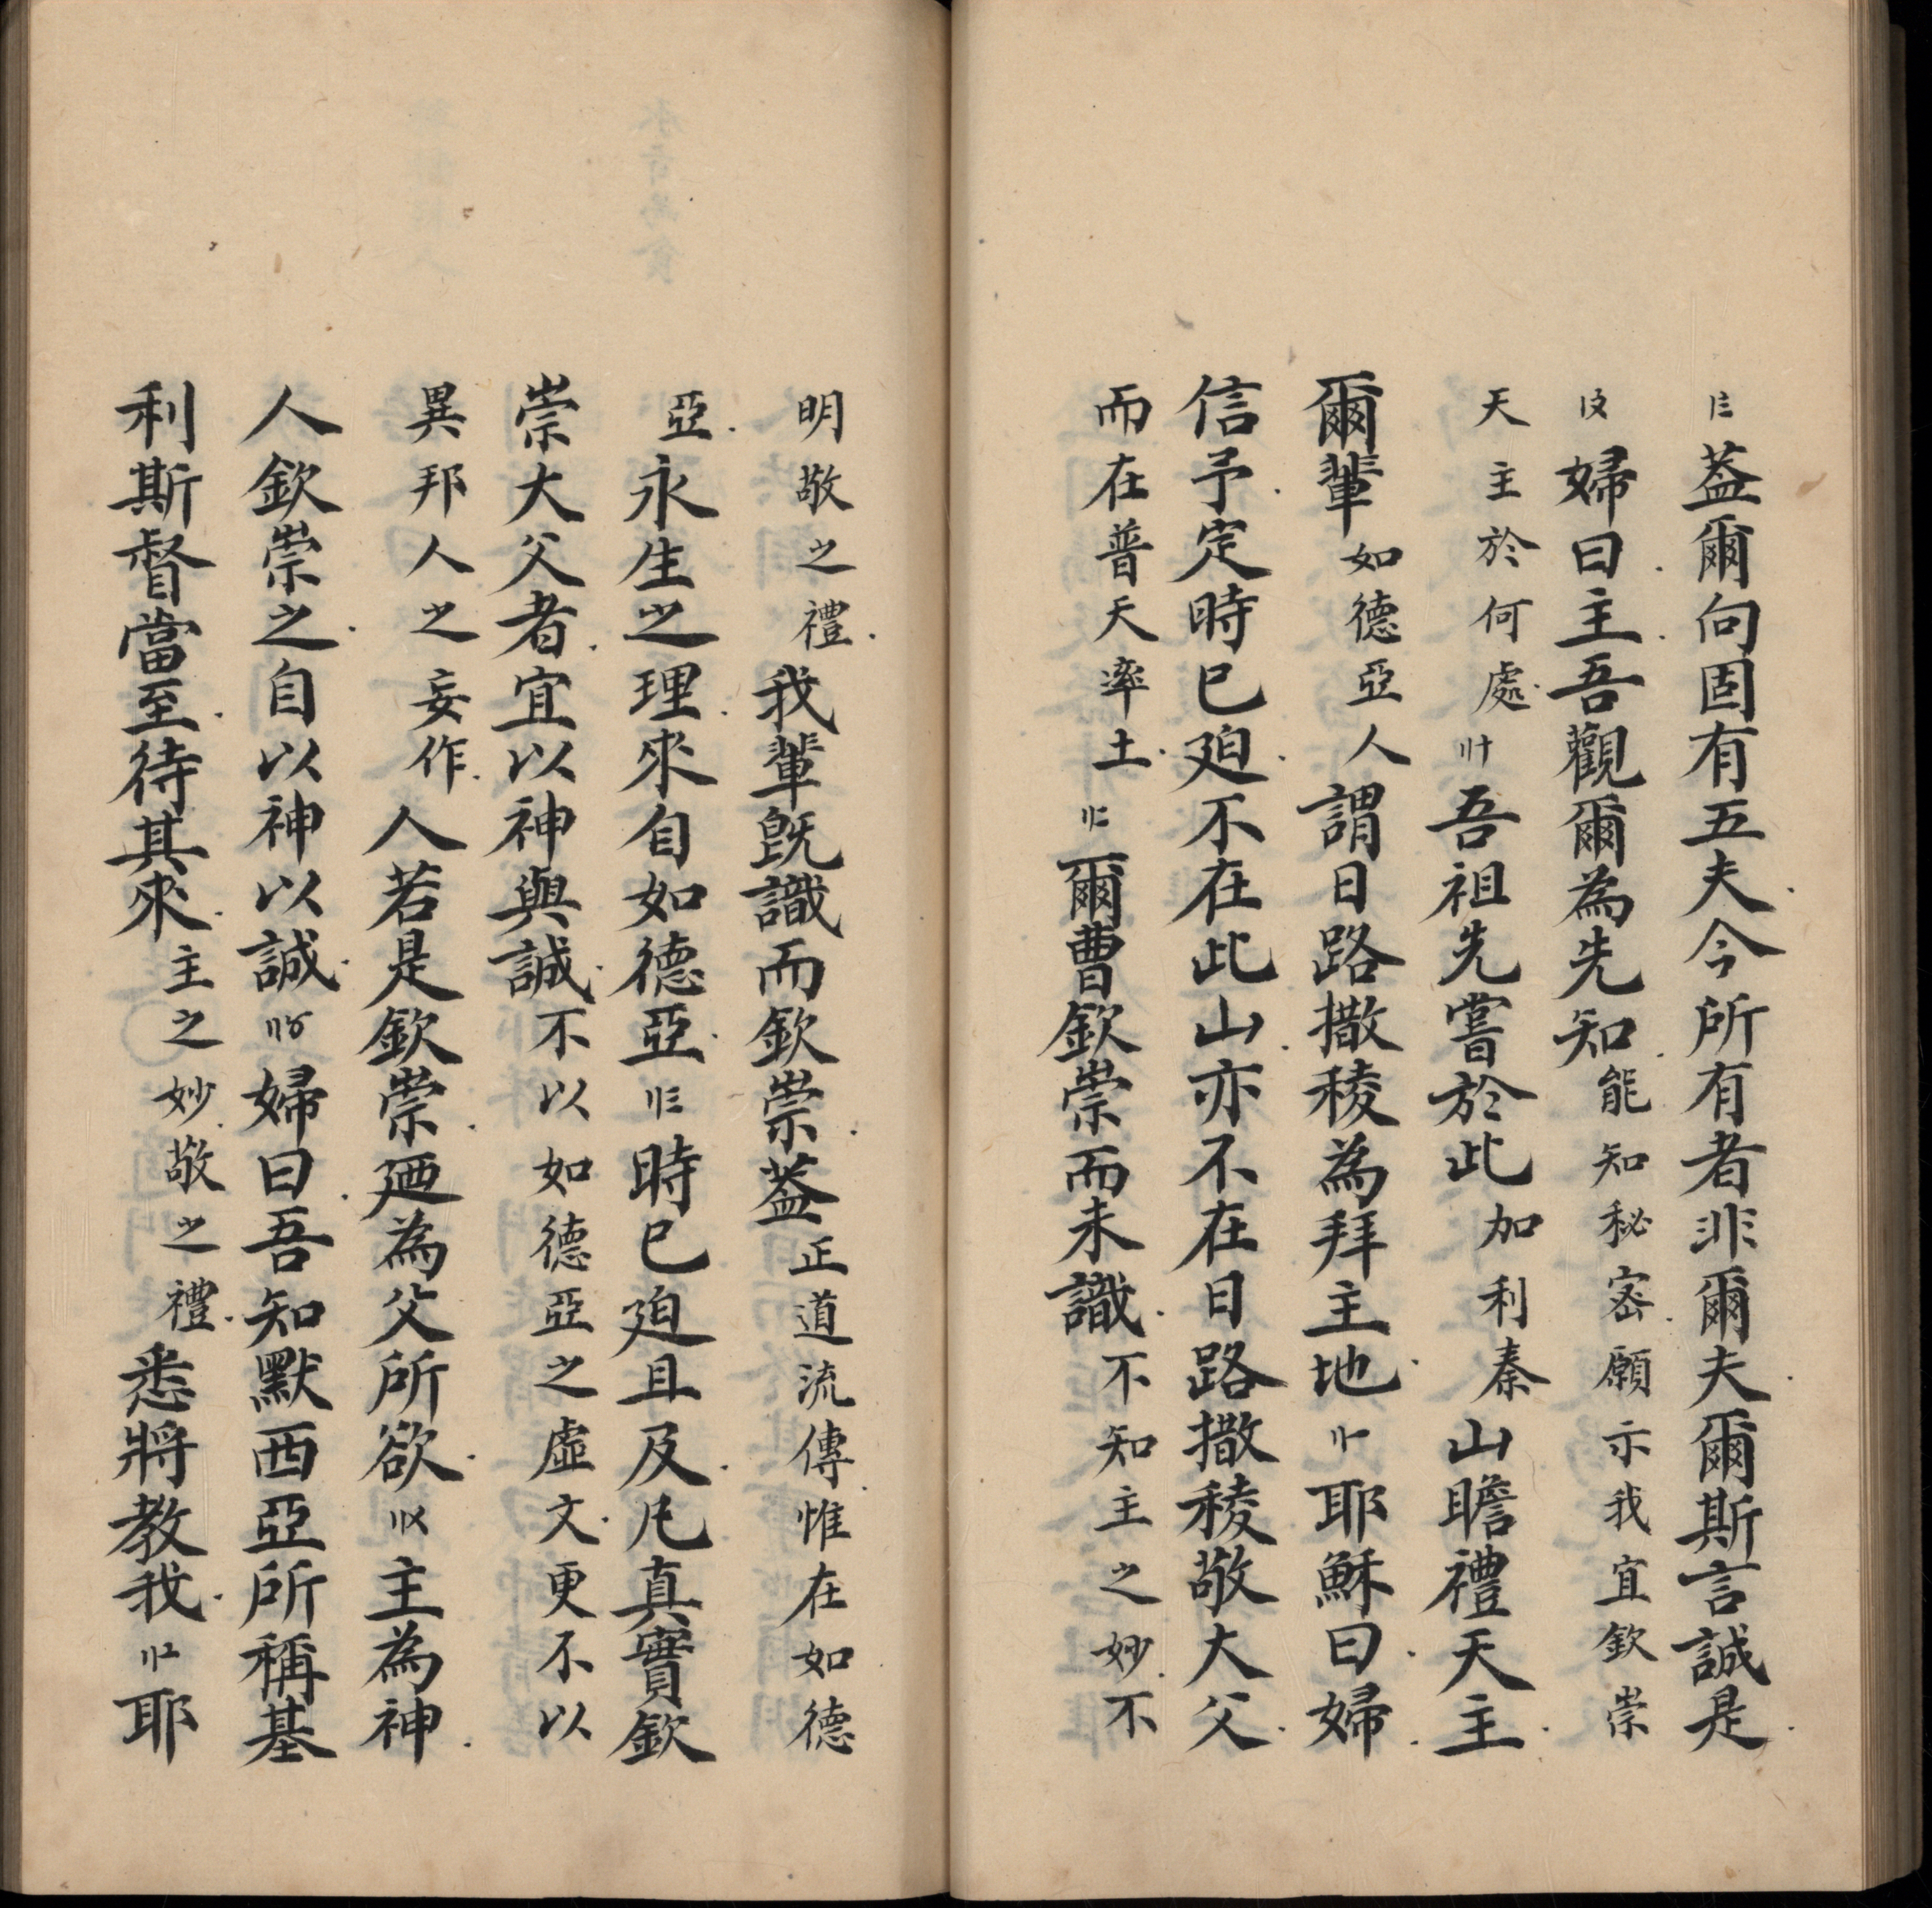 〡〨葢爾向固有五夫今所有者非爾夫爾斯言誠是
〡〩婦曰主吾觀爾為先知能知秘密願示我宜欽崇
天主於何處〢十吾祖先嘗於此加利秦山瞻禮天主
爾輩如德亞人謂日路撒稜為拜主地〢一耶穌曰婦
信予定時已廹不在此山亦不在日路撒稜敬大父
而在普天率土〢二爾曹欽崇而未識不知主之妙不
明敬之禮我輩旣識而欽崇葢正道流傳惟在如德
亞永生之理來自如德亞〢三時已廹且及凡真實欽
崇大父者宜以神與誠不以如德亞之虛文更不以
異邦人之妄作人若是欽崇廼為父所欲〢〤主為神
人欽崇之自以神以誠〢〥婦曰吾知默西亞所稱基
利斯督當至待其來主之妙敬之禮悉將教我〢〦耶